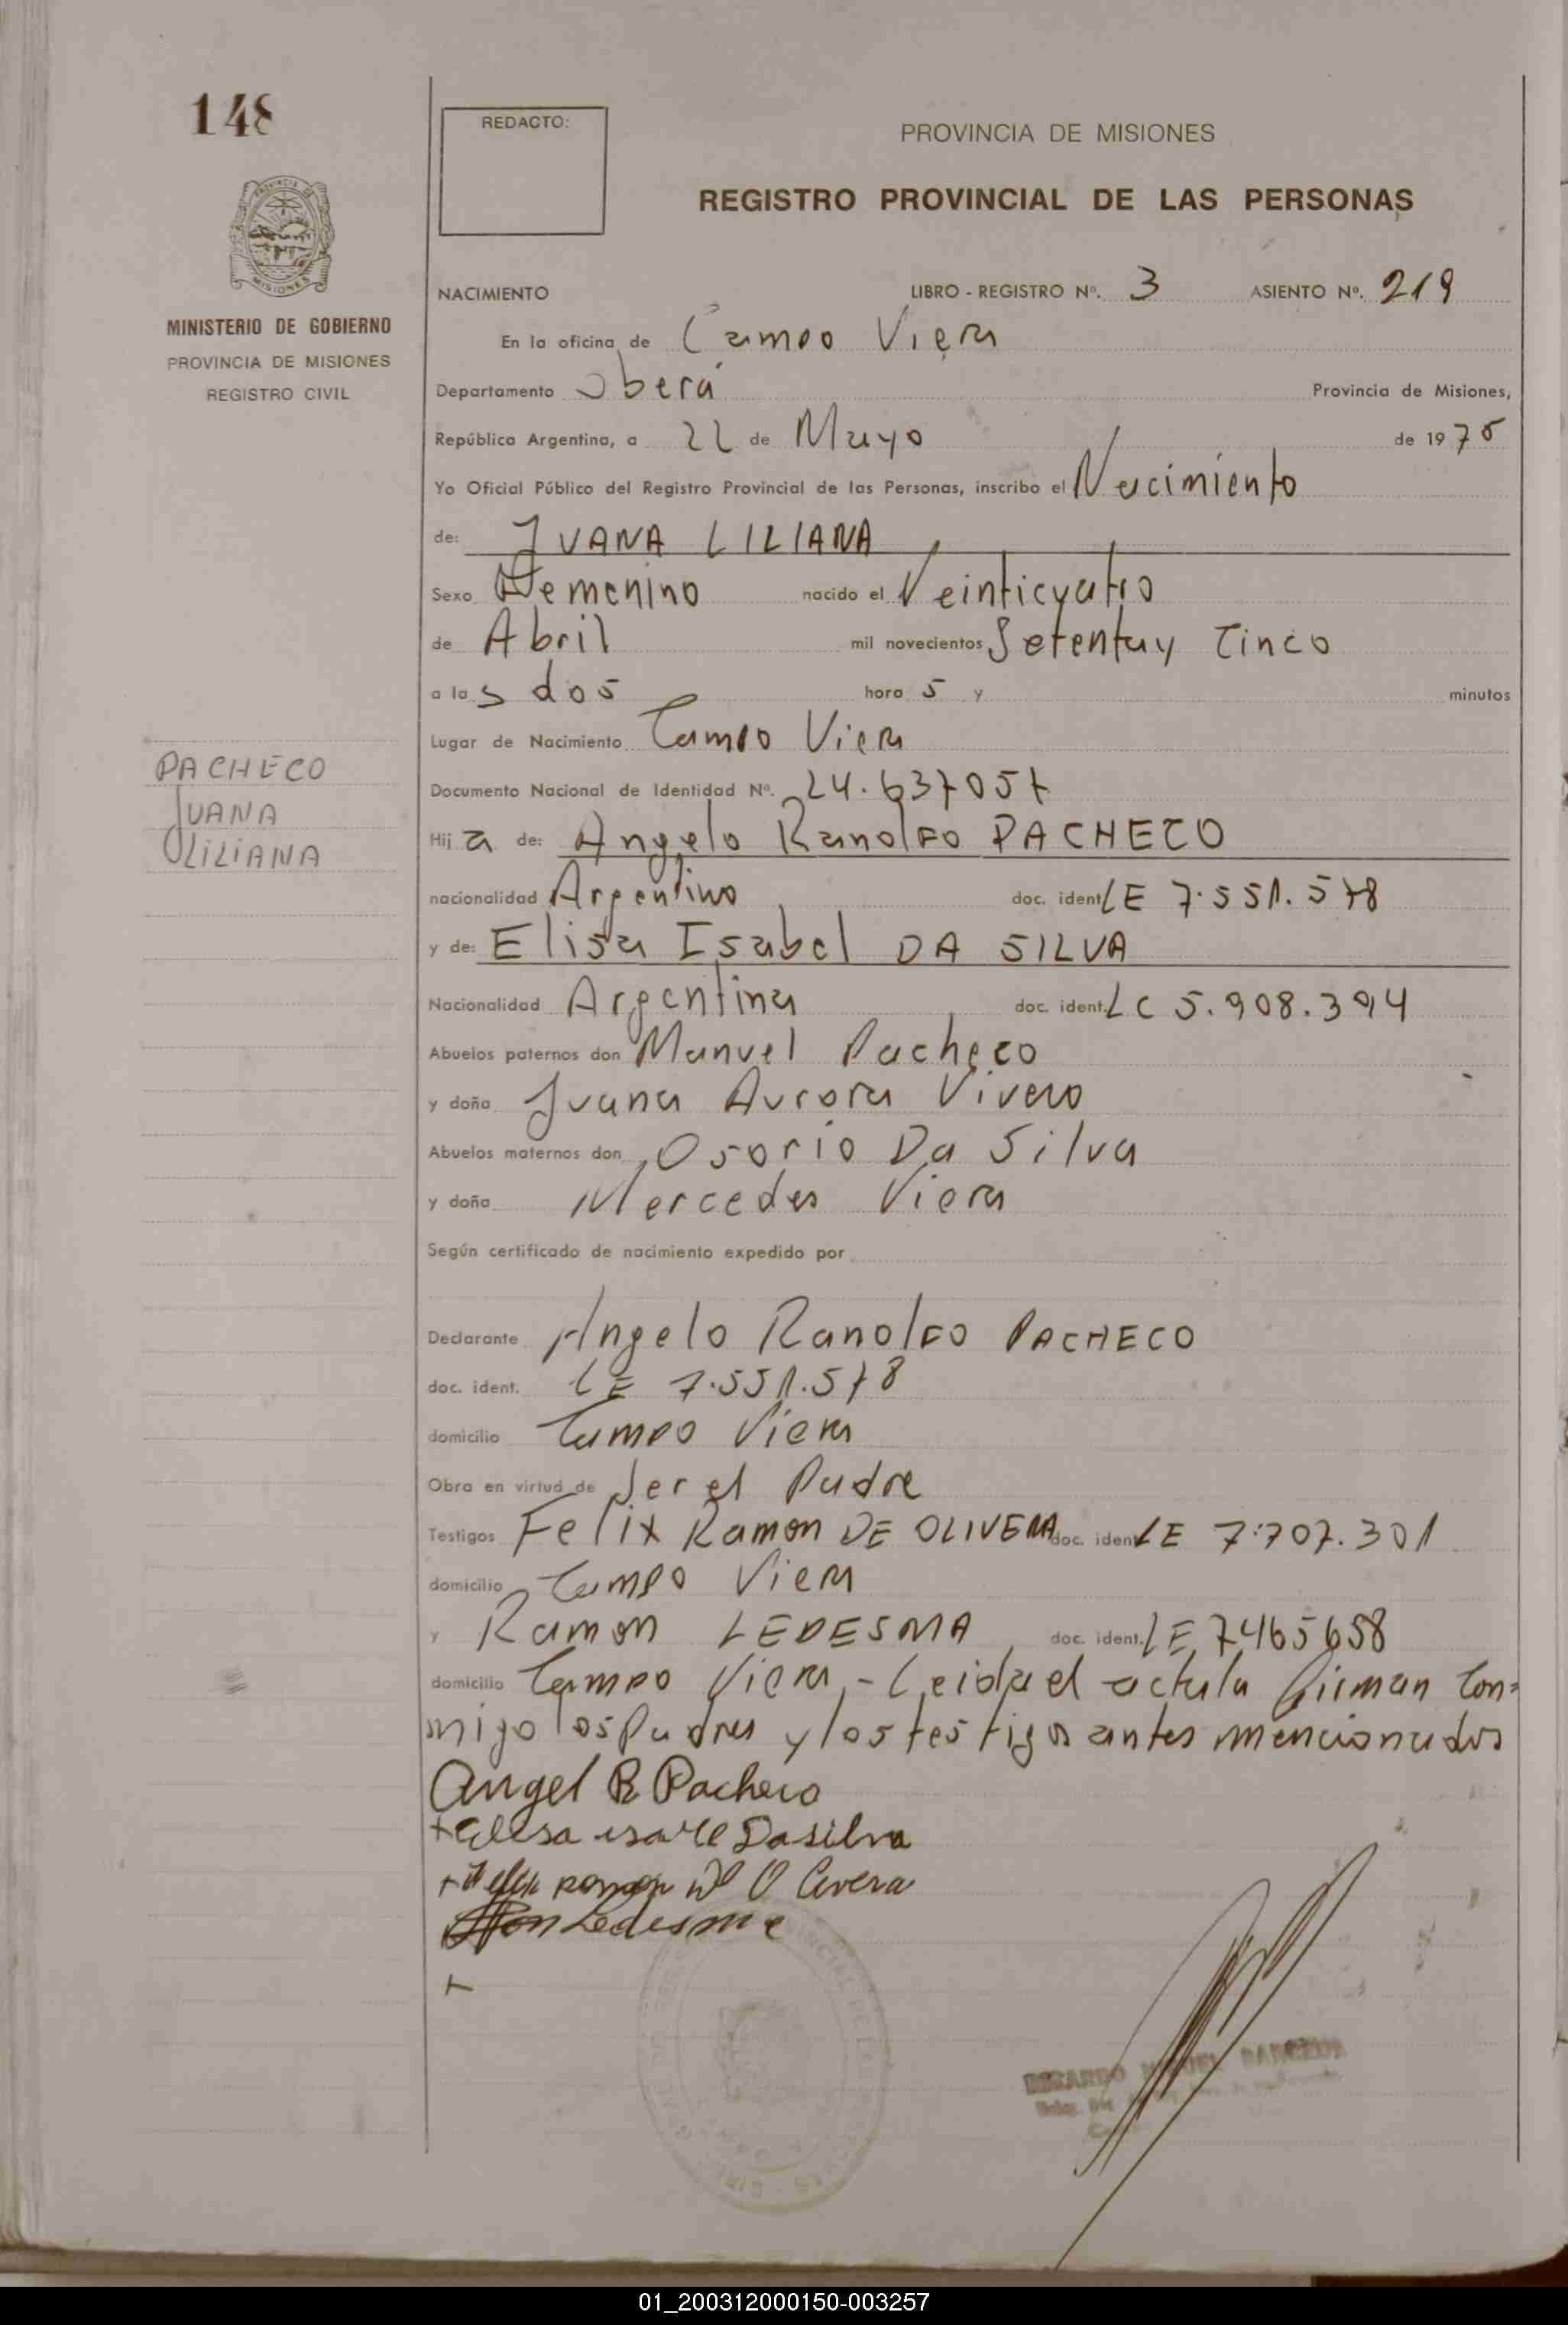 148
REDACTO:
PROVINCIA DE MISIONES
REGISTRO PROVINCIAL DE LAS PERSONAS
PROVINCIA DE
MISIONES
MINISTERIO DE GOBIERNO
PROVINCIA DE MISIONES
REGISTRO CIVIL
NACIMIENTO LIBRO - REGISTRO Nº. 3 ASIENTO Nº. 219
En la oficina de Campo Viera
Departamento Oberá Provincia de Misiones,
República Argentina, a 22 de Mayo de 1975
Yo Oficial Público del Registro Provincial de las Personas, inscribo el Nacimiento
de: JUANA LILIANA
Sexo Femenino nacido el Veinticuatro
de Abril mil novecientos Setentay Cinco
a las dos hora s y minutos
Lugar de Nacimiento Campo Viera
PACHECO
JUANA
LILIANA
Documento Nacional de Identidad Nº. 24.637057
Hija de: Angelo Ranolfo PACHECO
nacionalidad Argentino doc. ident. LE 7.551.578
y de: Elisa Isabel DA SILVA
Nacionalidad Argentina doc. ident. LC 5.908.394
Abuelos paternos don Manuel Pacheco
y doña Juana Aurora Vivero
Abuelos maternos don Osorio Da Silva
y doña Mercedes Viera
Según certificado de nacimiento expedido por
Declarante Angelo Ranolfo PACHECO
doc. ident. LE 7.551.578
domicilio Campo Viera
Obra en virtud de Ser el Padre
Testigos Felix Ramon DE OLIVERA doc. ident. LE 7.707.301
domicilio Campo Viera
y Ramon LEDESMA doc. ident. LE 7465658
domicilio Campo Viera - Leida el acta la firman Con=
migo los Padres y los testigos antes mencionados
Angel R Pacheco
+ Elisa isabel Dasilva
+ Felix ramon d O livera
Ledesma
+
01_200312000150-003257